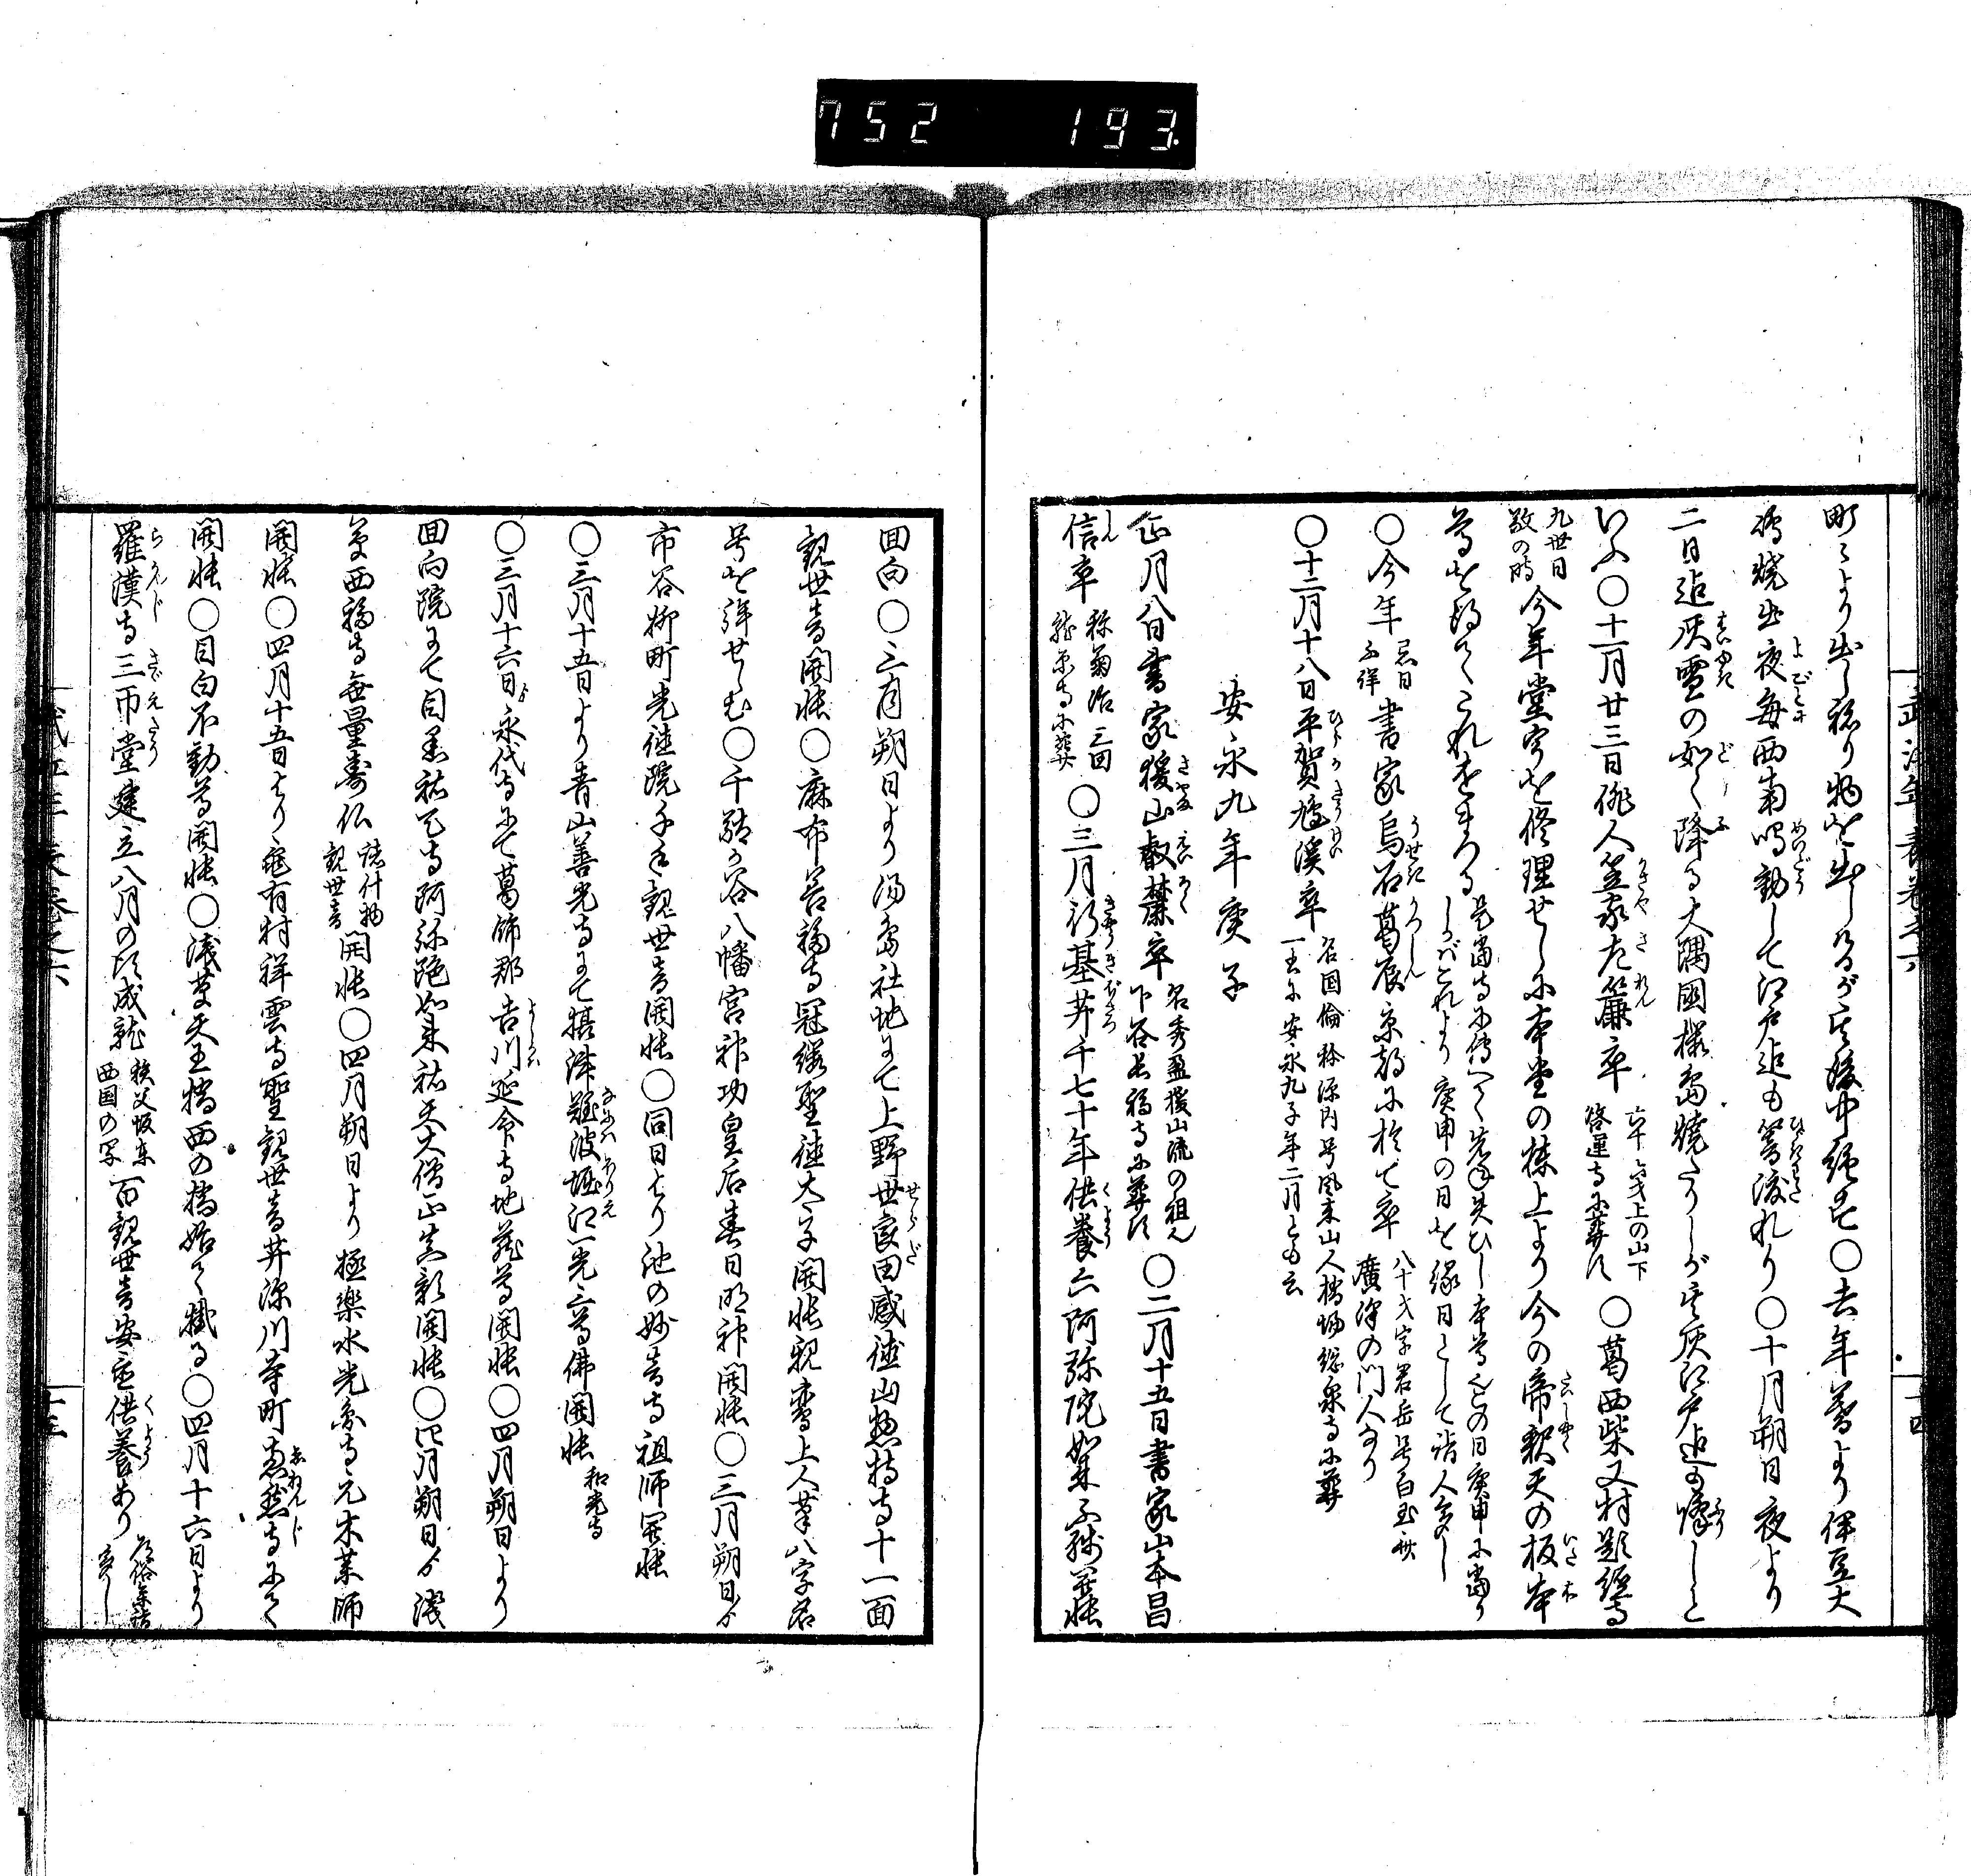 752 193
武江年表巻之六
町々より出し祢り物を出しけるが其後中絶す〇去年暮より伊豆大
嶋焼出夜毎西南鳴動して江戸迄も響渡れり〇十月朔日夜より
二日迄灰雪の如く降る大隅国桜島焼たりしが其灰江戸迄も降しと
いふ〇十一月廿三日俳人笠家左簾卒 六十 才上の山下
啓運寺に葬す 〇葛西柴又村題経寺
九世日
敬の時 今年堂宇を修理せしに本堂の棟上より今の帝釈天の板本
尊を得てこれをまつる 是当寺に伝へて先年失ひし本尊也その日庚申に当り
しかばこれより庚申の日を縁日として詣人多し
〇今年 忌日
不詳 書家烏石葛辰京都に於て卒 八十才字君岳号白玉斎
廣澤の門人なり
〇十二月十八日平賀鳩溪卒 名国倫称源内号風来山人橋場総泉寺に葬
一書に安永九子年二月とも云
安永九年庚子
正月八日書家猨山叡麓卒 名秀盈猨山流の祖也
下谷長福寺に葬す 〇二月十五日書家山本昌
信卒 称菊治三田
龍原寺に葬 〇三月行基菩千七十年供養六阿弥陀如来不残開帳
回向〇三月朔日より湯島社地にて上野世良田威徳山惣持寺十一面
観世音開帳〇麻布善福寺冠纓聖徳太子開帳親鸞上人筆八字名
号を拝せしむ〇千駄ヶ谷八幡宮神功皇后春日明神開帳〇三月朔日より
市谷柳町光徳院千手観世音開帳〇同日より池の妙音寺祖師開帳
〇三月十五日より青山善光寺にて摂津難波堀江一光三尊佛開帳 和光寺
〇三月十六日より永代寺にて葛飾郡吉川延命寺地蔵尊開帳〇四月朔日より
回向院にて目黒祐天寺阿弥陀如来祐天大僧正真影開帳〇四月朔日より浅
草西福寺無量寿仏 諸什物
観世音 開帳〇四月朔日より極楽水光円寺元木薬師
開帳〇四月十五日より亀有村祥雲寺聖観世音菩深川寺町恵然寺にて
開帳〇目白不動尊開帳〇浅草天王橋西の橋始て掛る〇四月十六日より
羅漢寺三匝堂建立八月の頃成就 秩父坂東
西国の写 一百観世音安置供養あり 道俗参詣
多し